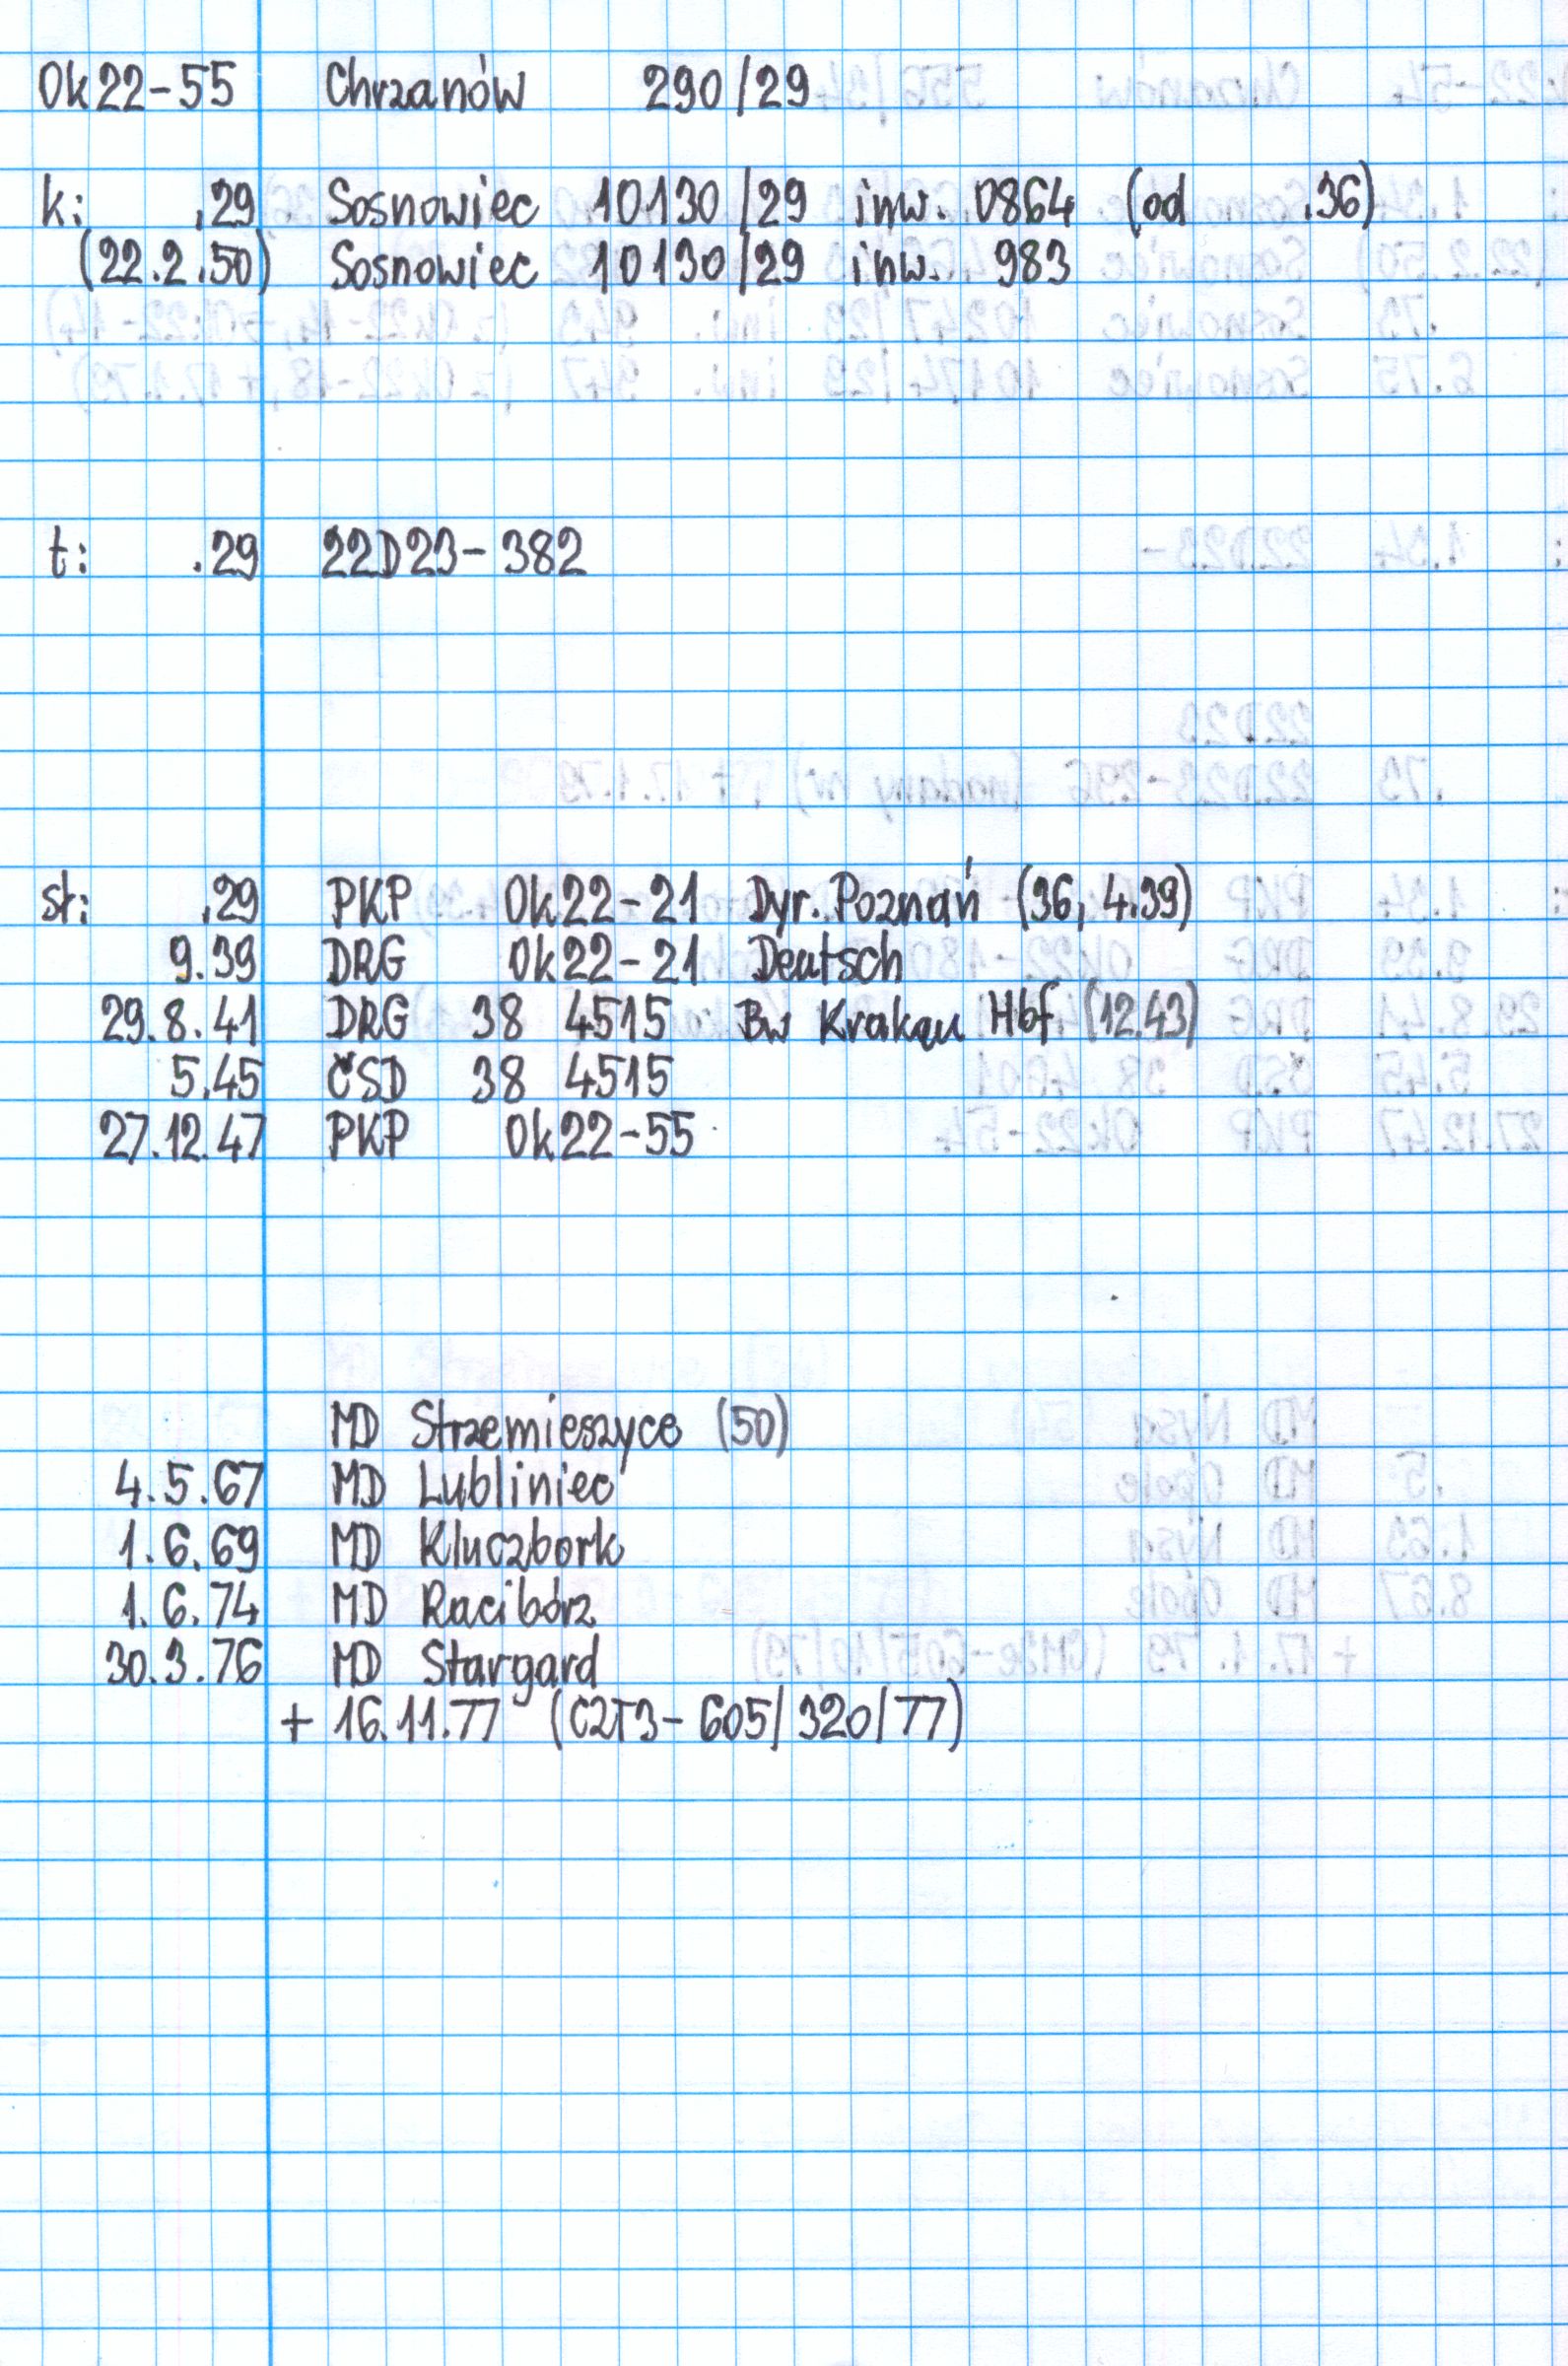 Ok22-55 Chrzanów 290/29
k: .29 Sosnowiec 10130/29 inw. 0864 (od .36)
(22.2.50) Sosnowiec 10130/29 inw. 983
t: .29 22D23-382
st: .29 PKP Ok22-21 Dyr. Poznań (36, 4.39)
9.39 DRG Ok22-21 Deutsch
29.8.41 DRG 38 4515 Bw Krakau Hbf (12.43)
5.45 ČSD 38 4515
27.12.47 PKP Ok22-55
MD Strzemieszyce (50)
4.5.67 MD Lubliniec
1.6.69 MD Kluczbork
1.6.74 MD Racibórz
30.3.76 MD Stargard
+ 16.11.77 (C2T3-605/320/77)